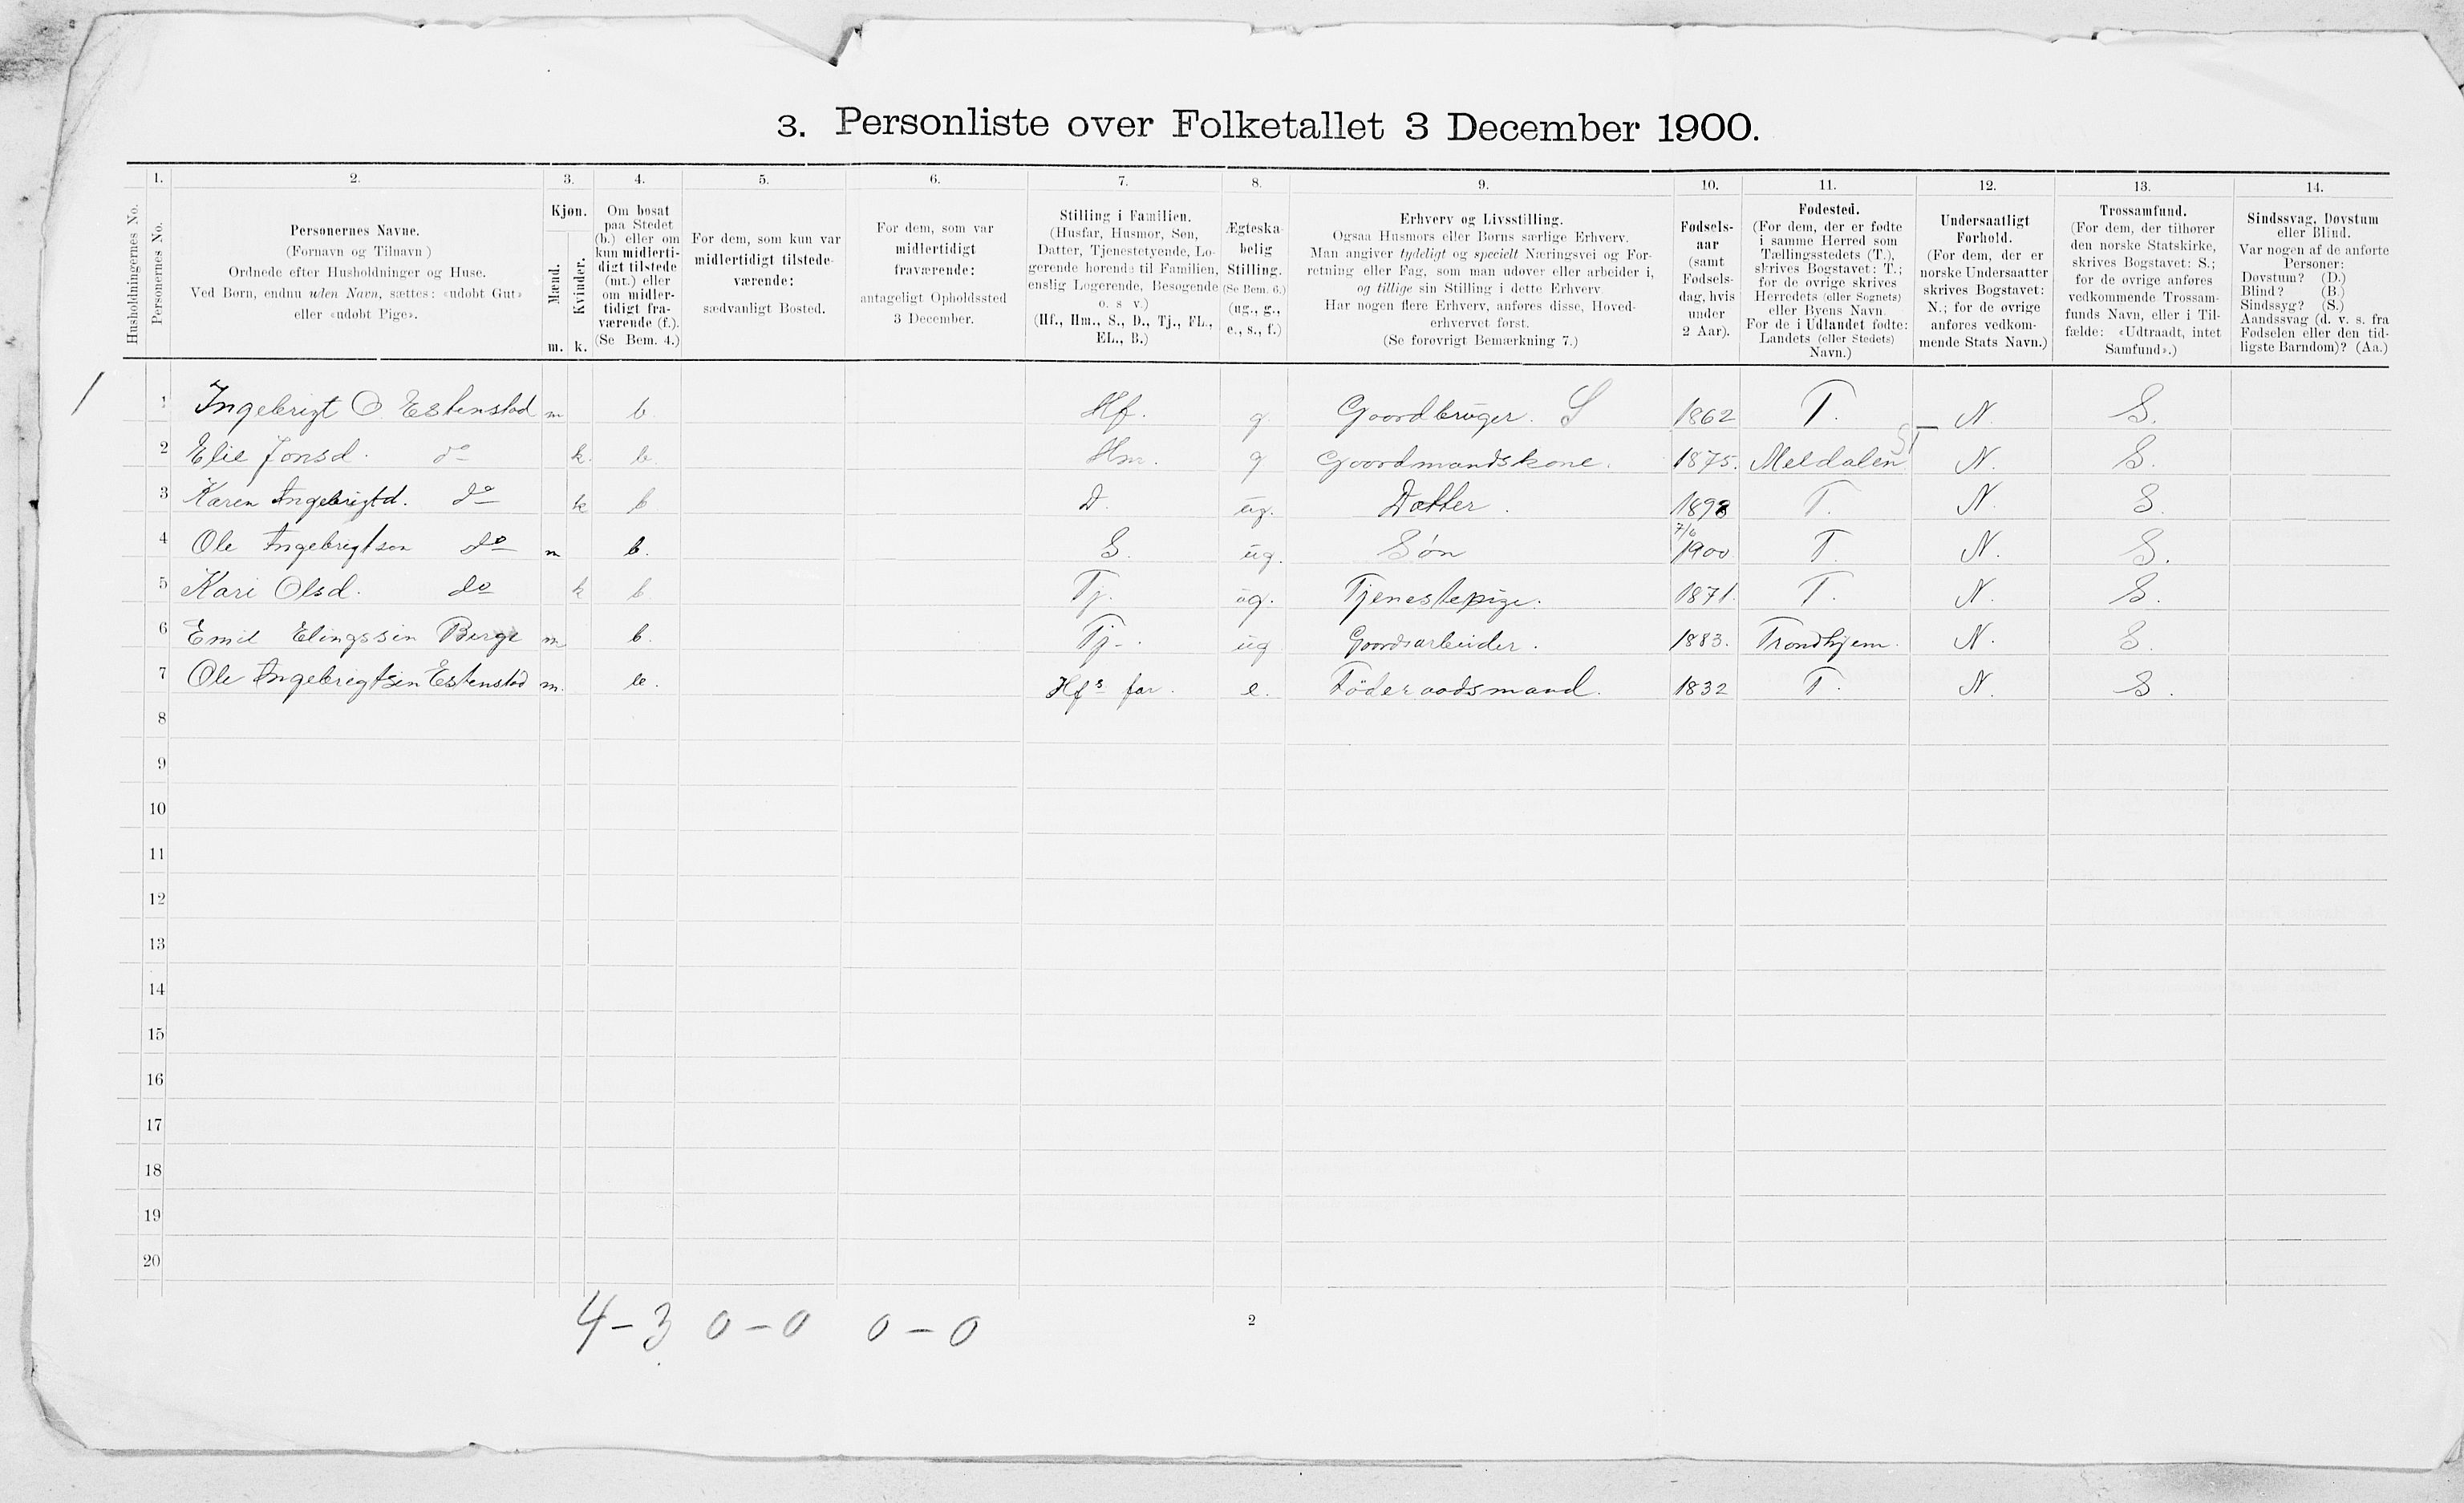 3. Personliste over Folketallet 3 December 1900.
1. 2. 3. 4. 5. 6. 7. 8. 9. 10. 11. 12. 13. 14.
Husholdningernes No.
Personernes No.
Personernes Navne.
(Fornavn og Tilnavn)
Ordnede efter Husholdninger og Huse.
Ved Børn, endnu uden Navn, sættes: «udøbt Gut»
eller «udøbt Pige».
Kjøn.
Mænd.
Kvinder.
m. k.
Om bosat
paa Stedet
(b.) eller om
kun midlerti-
digt tilstede
(mt.) eller
om midler-
tidigt fra-
værende (f.).
(Se Bem. 4.)
For dem, som kun var
midlertidigt tilstede-
værende:
sædvanligt Bosted.
For dem, som var
midlertidigt
fraværende:
antageligt Opholdssted
3 December.
Stilling i Familien.
(Husfar, Husmor, Søn,
Datter, Tjenestetyende, Lo-
gerende hørende til Familien,
enslig Logerende, Besøgende
o. s v.)
(Hf., Hm., S., D., Tj., FL.,
EL., B.)
Ægteska-
belig
Stilling.
(Se Bem. 6.)
(ug., g.,
e., s., f.)
Erhverv og Livsstilling.
Ogsaa Husmors eller Børns særlige Erhverv.
Man angiver tydeligt og specielt Næringsvei og For-
retning eller Fag, som man udøver eller arbeider i,
og tillige sin Stilling i dette Erhverv.
Har nogen flere Erhverv, anføres disse, Hoved-
erhvervet først.
(Se forøvrigt Bemærkning 7.)
Fødsels-
aar
(samt
Fødsels-
dag, hvis
under
2 Aar).
Fødested.
(For dem, der er fødte
i samme Herred som
Tællingsstedets (T.),
skrives Bogstavet: T.;
for de øvrige skrives
Herredets (eller Sognets)
eller Byens Navn.
For de i Udlandet fødte:
Landets (eller Stedets)
Navn.)
Undersaatligt
Forhold.
(For dem, der er
norske Undersaatter
skrives Bogstavet:
N.; for de øvrige
anføres vedkom-
mende Stats Navn.)
Trossamfund.
(For dem, der tilhører
den norske Statskirke,
skrives Bogstavet: S.;
for de øvrige anføres
vedkommende Trossam-
funds Navn, eller i Til-
fælde: «Udtraadt, intet
Samfund».)
Sindssvag, Døvstum
eller Blind.
Var nogen af de anførte
Personer:
Døvstum? (D.)
Blind? (B.)
Sindssyg? (S.)
Aandssvag (d. v. s. fra
Fødselen eller den tid-
ligste Barndom)? (Aa.)
1 Ingebrigt O. Estenstad m b. Hf. g. Goardbruger. S 1862 T. N. S.
2 Elie Jonsd. do k. b. Hm. g Goardmandskone. 1875. Meldalen ST N. S.
3 Karen Ingebrigtd. do k b D. ug. Datter. 1898 T. N. S.
4 Ole Ingebrigtson do m b. S. ug. Søn 7/6 1900 T. N. S.
5 Kari Olsd. do k b Tj. ug. Tjenestepige. 1871. T. N. S.
6 Emil Elingssøn Berge m b. Tj. ug Goardsarbeider. 1883. Trondhjem. N. S.
7 Ole Ingebrigtsen Estenstad m. b. Hfs far. e. Föderaadsmand. 1832 T. N. S.
8
9
10
11
12
13
14
15
16
17
18
19
20
4-3 0-0 0-0
2